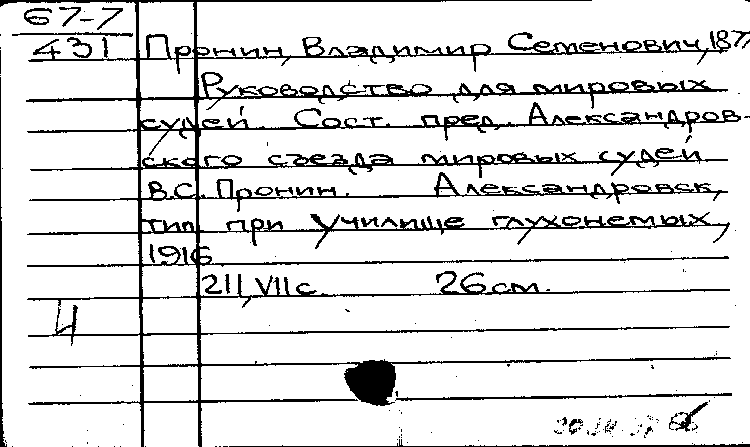 67-7
431 Пронин, Владимир Семенович, 187
Руководство для мировых
судей. Сост. пред. Александров-
ского съезда мировых судей
В.С. Пронин. Александровск,
тип. при училище глухонемых,
1916
211, VII с. 26 см.
Ц